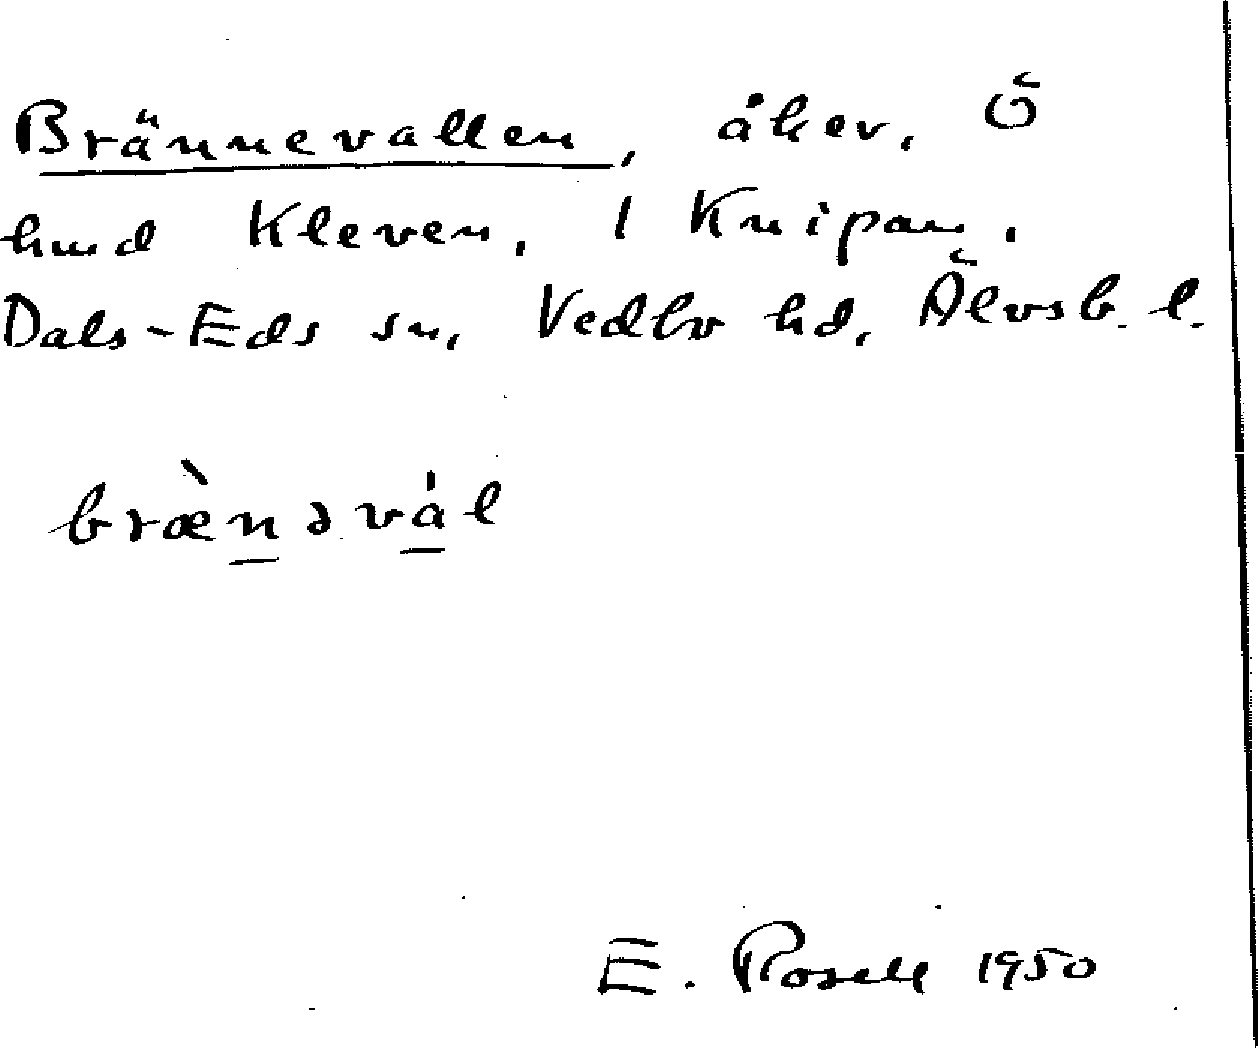 Brännevallen, åker, Ö
hmd Kleven, 1 Knipan,
Dals-Eds sn, Vedbo hd, Älvsb. l.
bræ̀nəvál
E. Rosell 1950